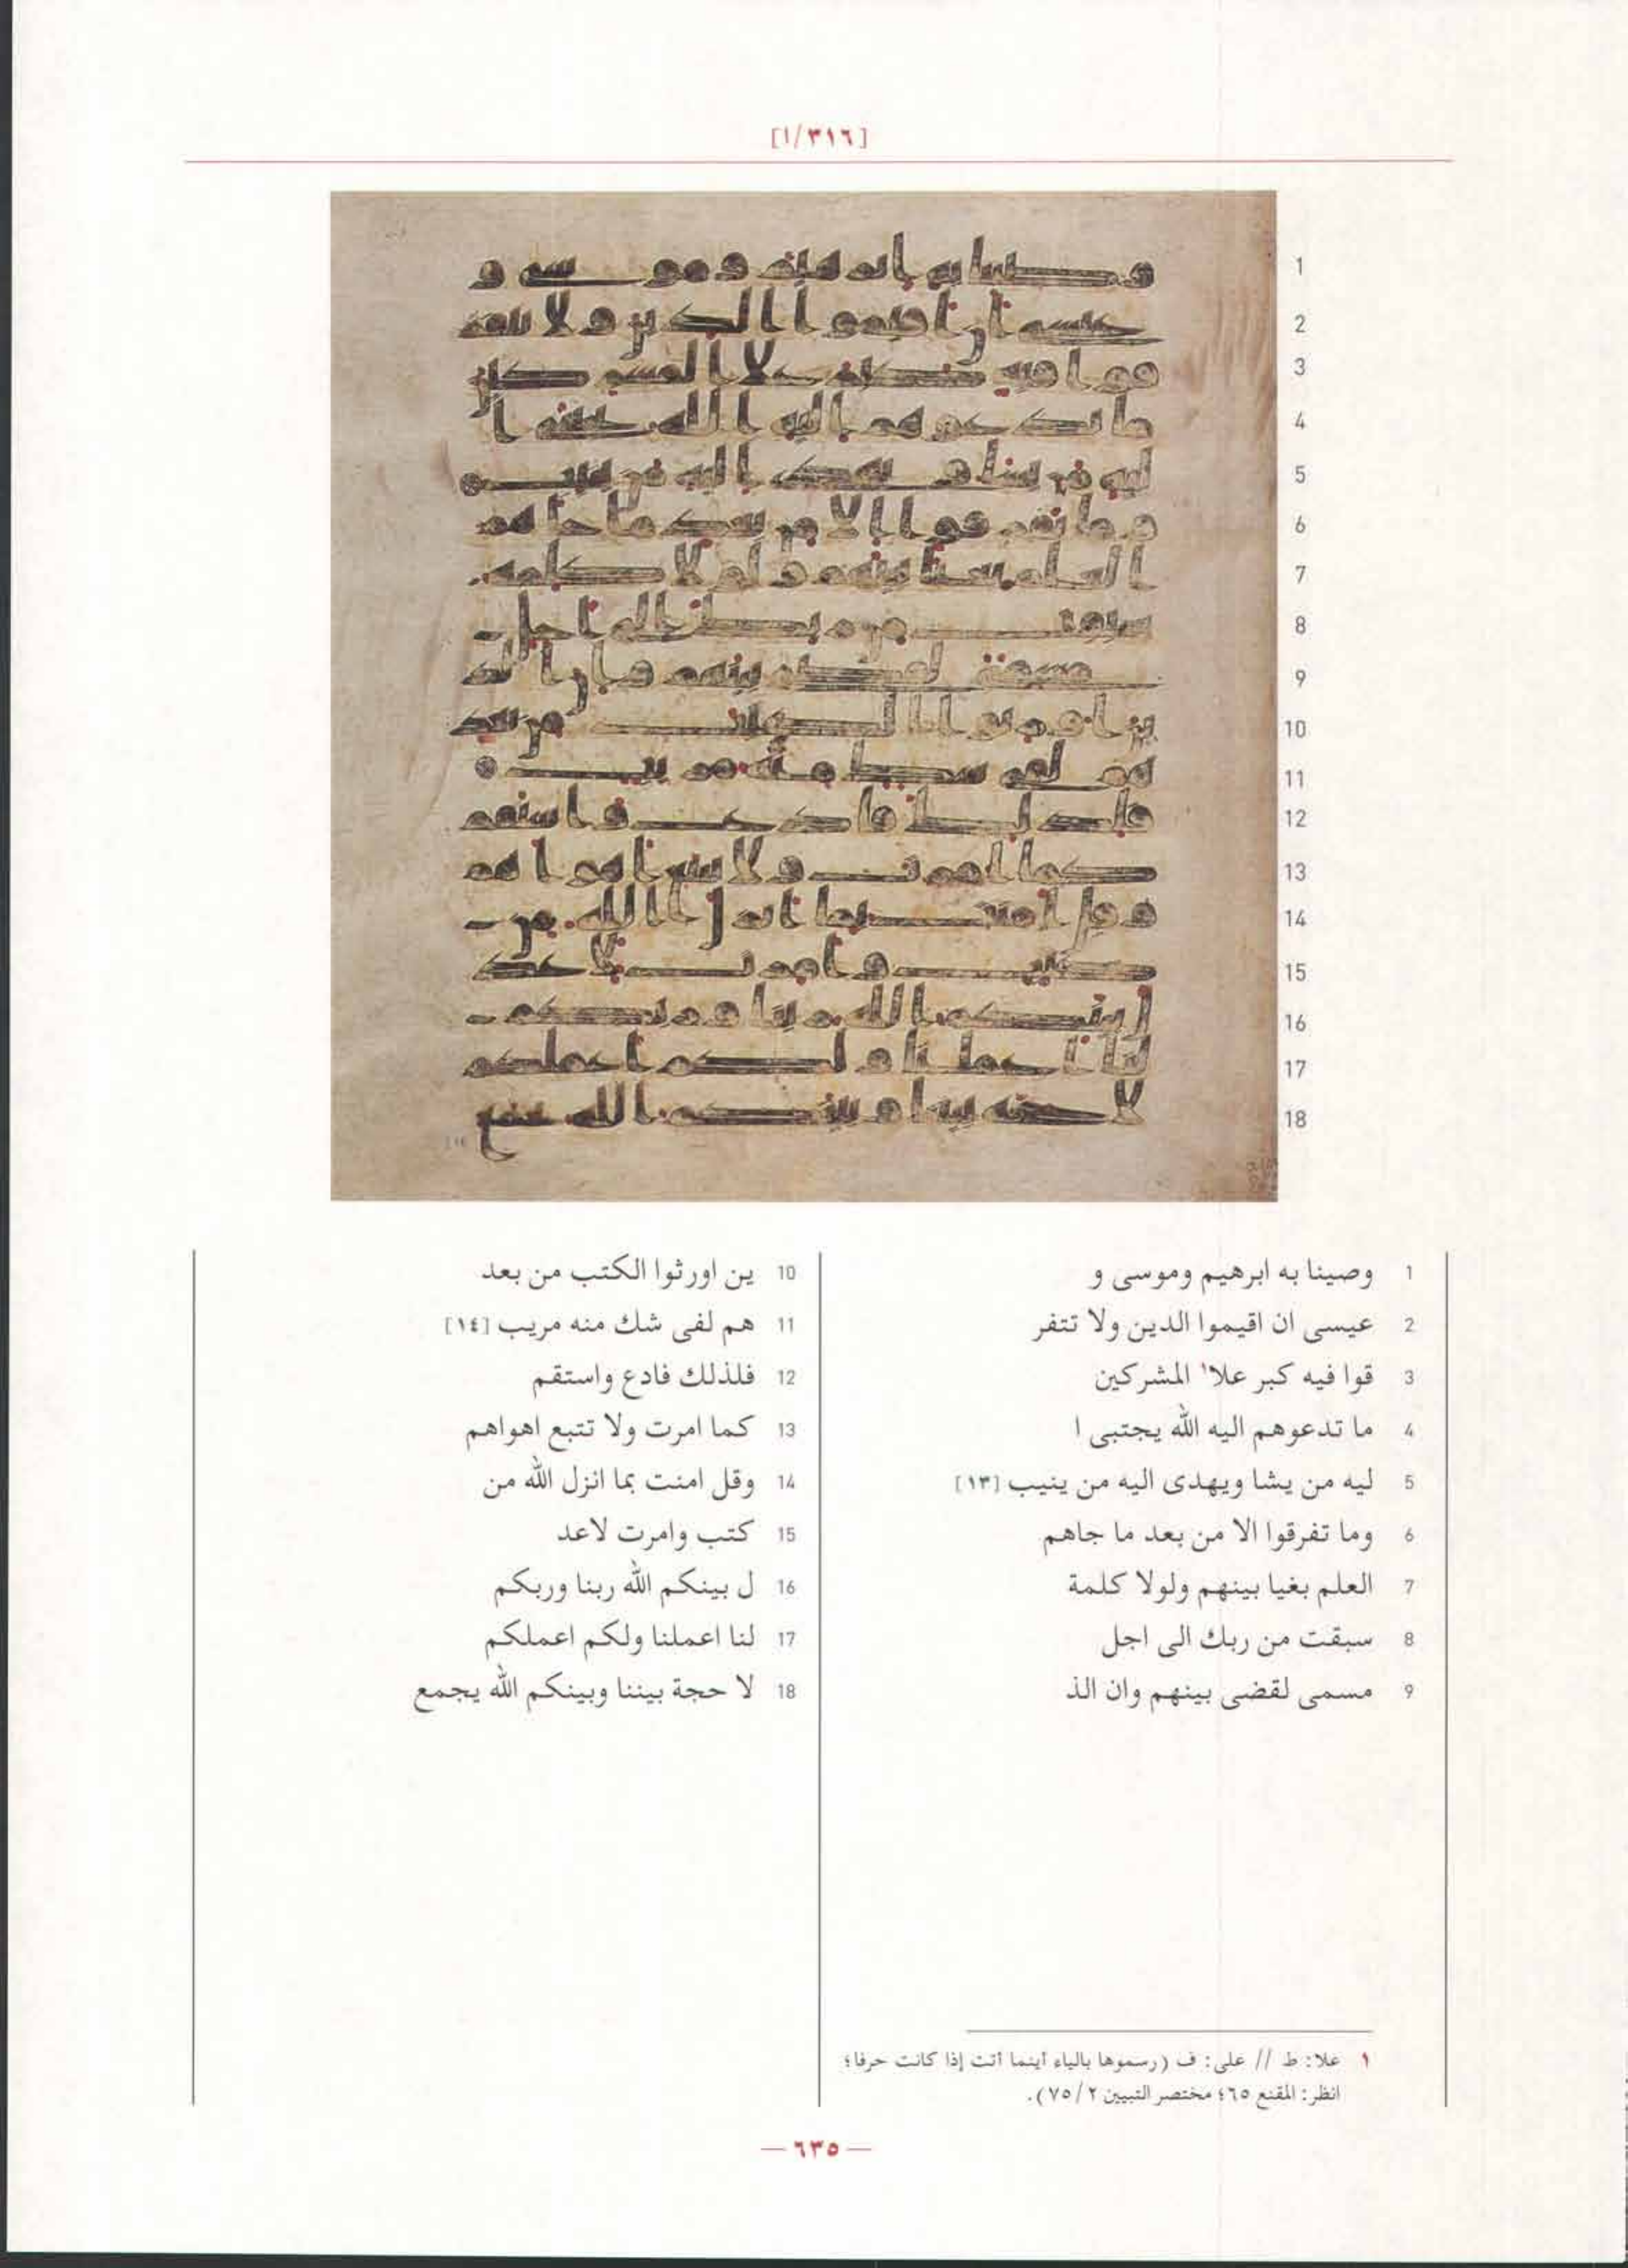 [٣١٦/ا]
1 وصينا به ابرهيم وموسى و
2 عيسى ان اقيموا الدين ولا تتفر
3 قوا فيه كبر علا١ المشركين
4 ما تدعوهم اليه الله يجتبى ا
5 ليه من يشا ويهدى اليه من ينيب [١٣]
6 وما تفرقوا الا من بعد ما جاهم
7 العلم بغيا بينهم ولولا كلمة
8 سبقت من ربك الى اجل
9 مسمى لقضى بينهم وان الذ
10 ين اورثوا الكتب من بعد
11 هم لفى شك منه مريب [١٤]
12 فلذلك فادع واستقم
13 كما امرت ولا تتبع اهواهم
14 وقل امنت بما انزل الله من
15 كتب وامرت لاعد
16 ل بينكم الله ربنا وربكم
17 لنا اعملنا ولكم اعملكم
18 لا حجة بيننا وبينكم الله يجمع
١ علا: ط // على: ف (رسموها بالياء أينما أتت إذا كانت حرفا؛
انظر: المقنع ٦٥؛ مختصر التبيين ٢/ ٧٥).
— ٦٣٥ —